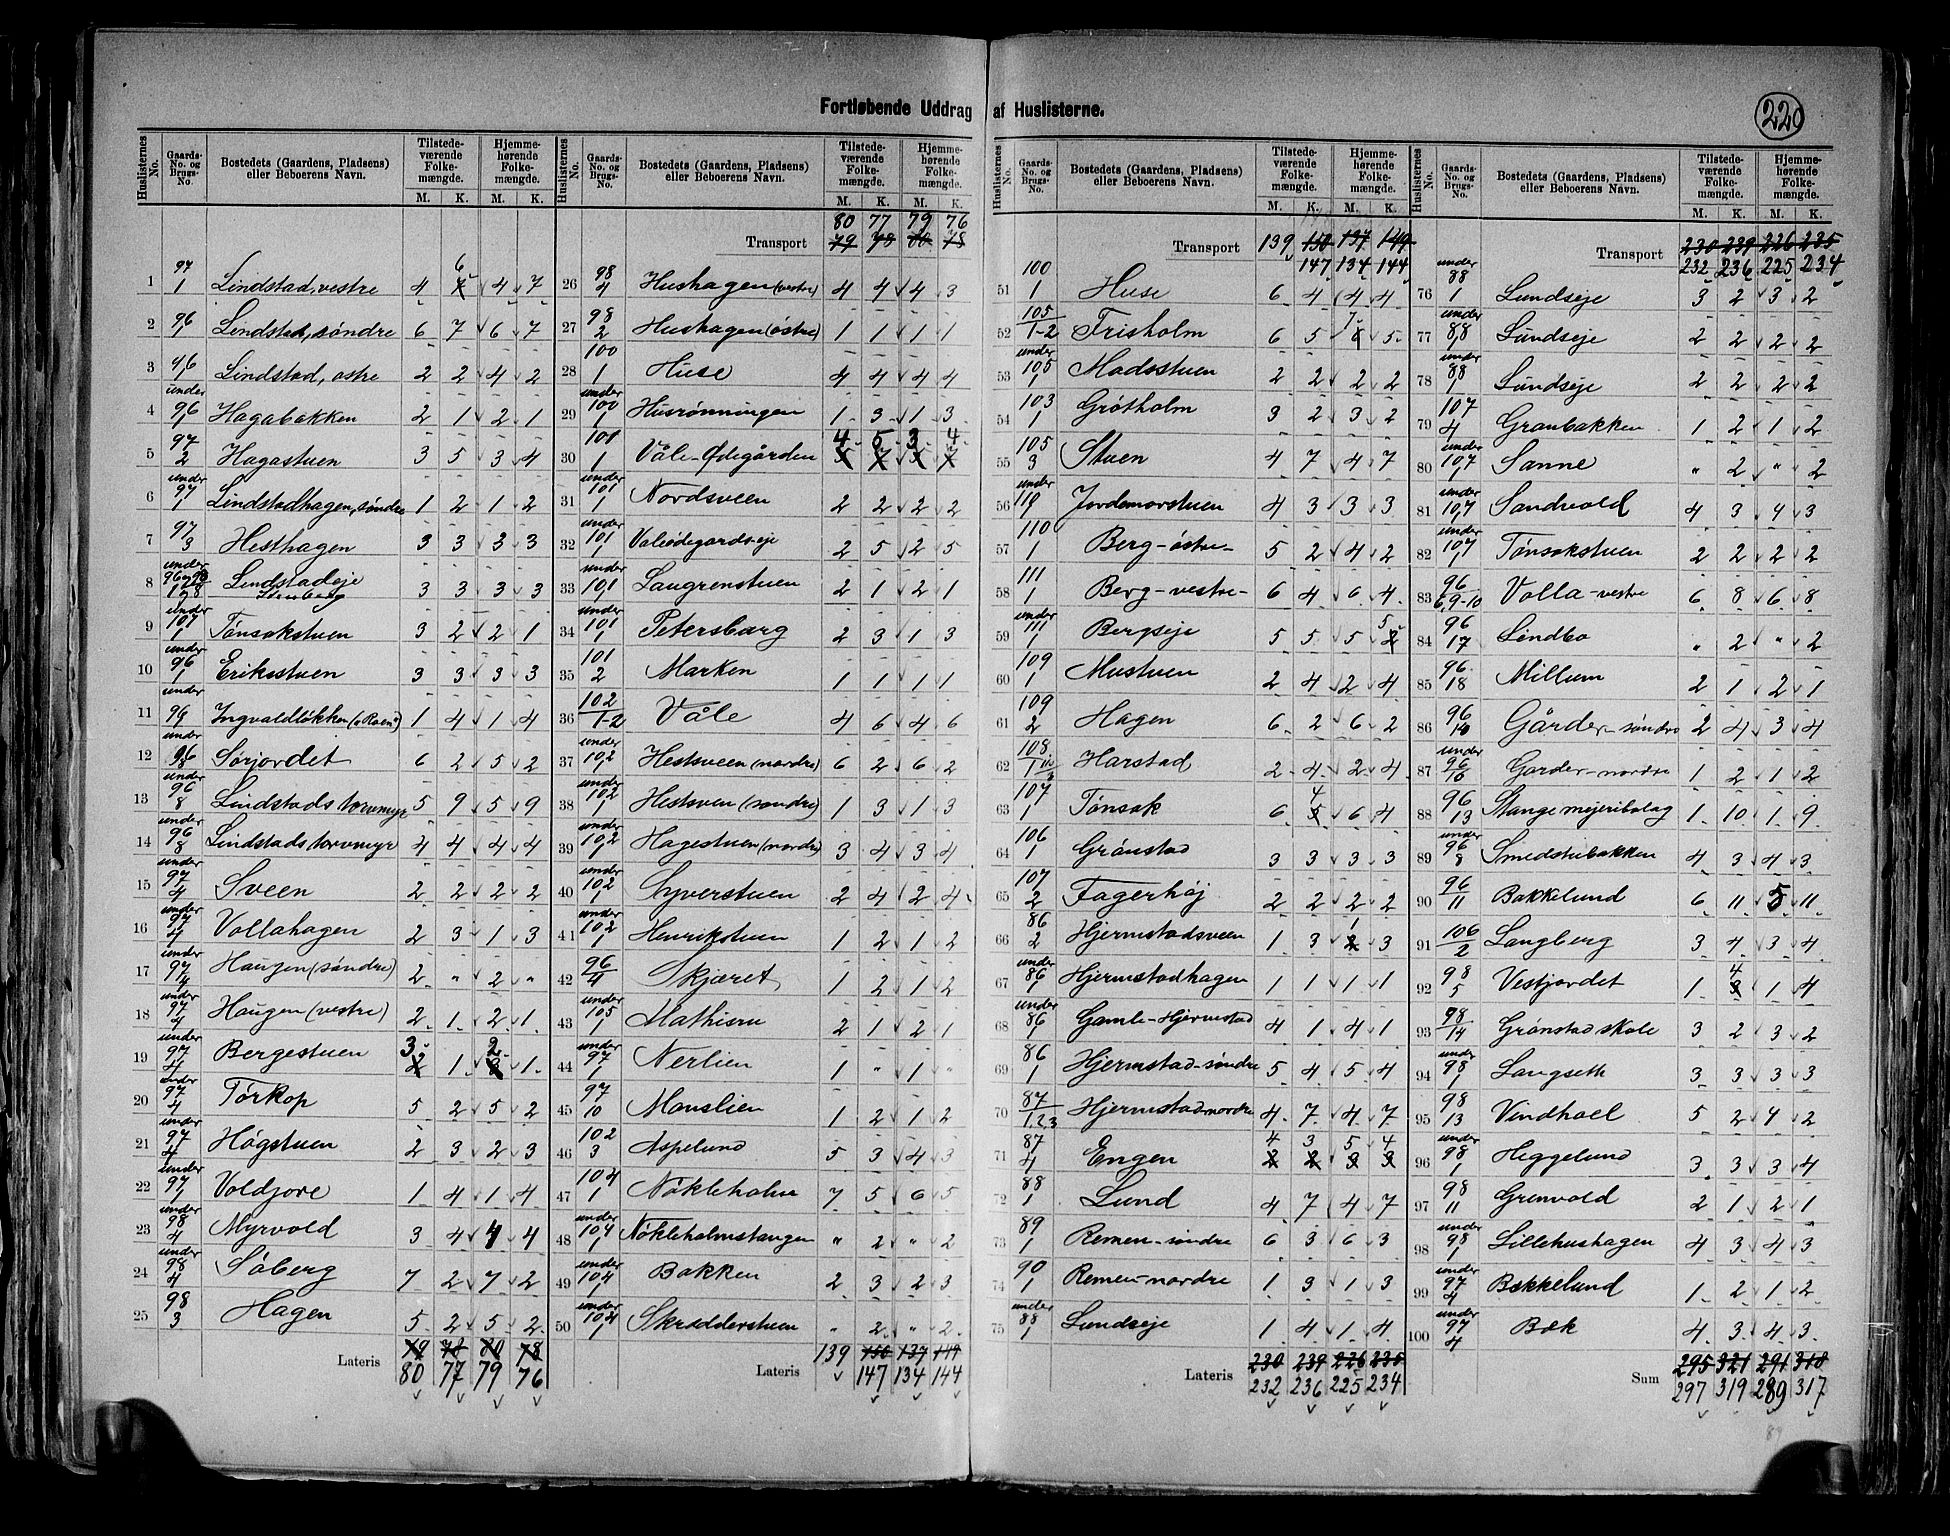 Fortløbende Uddrag af Huslisterne.
220
Huslisternes No. Gaards-No. og Brugs-No. Bostedets (Gaardens, Pladsens) eller Beboerens Navn. Tilstedeværende Folkemængde. M. K. Hjemmehørende Folkemængde. M. K.
1 97/1 Lindstad, vestre 4 6 4 7
2 96 Lindstad, søndre 6 7 6 7
3 96 Lindstad, østre 2 2 4 2
4 under 96 Hagabakken 2 1 2 1
5 97/2 Hagastuen 3 5 3 4
6 under 97/1 Lindstadhagen, søndre 1 2 1 2
7 97/3 Hesthagen 3 3 3 3
8 under Lindstadeje 3 3 3 3
9 under 107/1 Tønsakstuen 3 2 2 1
10 under 96/1 Eriksstuen 3 3 3 3
11 under 96 Ingvaldløkken 1 4 1 4
12 under 96/8 Sørjordet 6 2 5 2
13 under 96/8 Lindstads torvmyr 5 9 5 9
14 under 96/8 Lindstads torvmyr 4 4 4 4
15 under 97/4 Sveen 2 2 2 2
16 under 97/4 Vollahagen 2 3 1 3
17 under 97/4 Haugen (søndre) 2 " 2 "
18 under 97/4 Haugen (vestre) 2 1 2 1
19 under 97/4 Bergestuen 3 1 2 1
20 under 97/4 Tørkop 5 2 5 2
21 under 97/4 Høgstuen 2 3 2 3
22 under 97/1 Voldjore 1 4 1 4
23 under 98/4 Myrvold 3 4 4 4
24 under 98/4 Søberg 7 2 7 2
25 98/3 Hagen 5 2 5 2
Lateris 79 78 80 78
80 77 79 76
80 77 79 76
Transport 79 78 80 78
26 98/4 Hushagen (vestre) 4 4 4 3
27 98/2 Hushagen (østre) 1 1 1 1
28 100/1 Huse 4 4 4 4
29 under 100/1 Husrønningen 1 3 1 3
30 101/1 Våle-Ødegården 4 5 3 4
31 under 101/1 Nordsveen 2 2 2 2
32 under 101/1 Våleødegårdseje 2 5 2 5
33 under 101/1 Laugrenstuen 2 1 2 1
34 under 101/1 Petersborg 2 3 1 3
35 101/2 Marken 1 1 1 1
36 102/1-2 Våle 4 6 4 6
37 under 102 Hestsveen (nordre) 6 2 6 2
38 under 102/1 Hestsven (søndre) 1 3 1 3
39 under 102/1 Hagestuen (nordre) 3 4 3 4
40 under 102/1 Syverstuen 2 4 2 4
41 under 102/1 Henrikstuen 1 2 1 2
42 96/4 Skjæret 1 2 1 2
43 under 105/1 Mathisru 2 1 2 1
44 under 97/1 Nerlien 1 " 1 "
45 97/10 Monslien 1 2 1 2
46 102/3 Aspelund 5 3 4 3
47 104/1 Nøkleholm 7 5 6 5
48 under 104/1 Nøkleholmstangen " 2 " 2
49 under 104/1 Bakken 2 3 2 3
50 under 104/1 Skrædderstuen " 2 " 2
Lateris 139 150 137 149
147 134 144
Transport 139 150 137 149
147 134 144
51 100/1 Huse 6 4 4 4
52 105/1-2 Frisholm 6 5 7 5
53 under 105/1 Madsstuen 2 2 2 2
54 103/1 Grøtholm 3 2 3 2
55 105/3 Stuen 4 7 4 7
56 under 110/1 Jordemorstuen 4 3 3 3
57 110/1 Berg-østre 5 2 4 2
58 111/1 Berg-vestre 6 4 6 4
59 under 111/1 Bergseje 5 5 5 5
60 109/1 Mustuen 2 4 2 4
61 109/2 Hagen 6 2 6 2
62 108 Harstad 2 4 2 4
63 107/1 Tønsak 6 4 6 4
64 106/1 Grønstad 3 3 3 3
65 107/2 Fagerhøj 2 2 2 2
66 86/2 Hjermstadsveen 1 3 1 3
67 under 86/1 Hjermstadhagen 1 1 1 1
68 under 86/1 Gamle-Hjermstad 4 1 4 1
69 86/1 Hjermstad-søndre 5 4 5 4
70 87/1.2.3 Hjermstad nordre 4 7 4 7
71 87/4 Engen 4 3 5 4
72 88/1 Lund 4 7 4 7
73 89/1 Remen-søndre 6 3 6 3
74 90/1 Remen-nordre 1 3 1 3
75 under 88/1 Lundseje 1 4 1 4
Lateris 230 239 226 235
232 236 225 234
Transport 230 239 226 235
232 236 225 234
76 under 88/1 Lundseje 3 2 3 2
77 under 88/1 Lundseje 2 2 2 2
78 under 88/1 Lundseje 2 2 2 2
79 107/4 Granbakken 1 2 1 2
80 under 107 Sanne " 2 " 2
81 under 107 Sandvold 4 3 4 3
82 under 107/1 Tønsakstuen 2 2 2 2
83 96/6,9-10 Volla-vestre 6 8 6 8
84 96/17 Lindbo " 2 " 2
85 96/18 Millum 2 1 2 1
86 96/14 Gårder-søndre 2 4 3 4
87 under 96 Gårder-nordre 1 2 1 2
88 96/13 Stange mejeribolag 1 10 1 9
89 under 96/8 Smedstubakken 4 3 4 3
90 96/11 Bakkelund 6 11 5 11
91 106/2 Langberg 3 4 3 4
92 98/5 Vestjordet 1 4 1 4
93 98/14 Grønstad skole 3 2 3 2
94 under 98/1 Langseth 3 3 3 3
95 98/13 Vindhoel 5 2 4 2
96 under 98/1 Heggelund 3 3 3 4
97 98/11 Grenvold 2 1 2 1
98 under 98/1 Lillehushagen 4 3 4 3
99 under 97/4 Bækkelund 1 2 1 2
100 under 97/4 Bæk 4 3 4 3
Sum 295 321 291 318
297 319 289 317
89